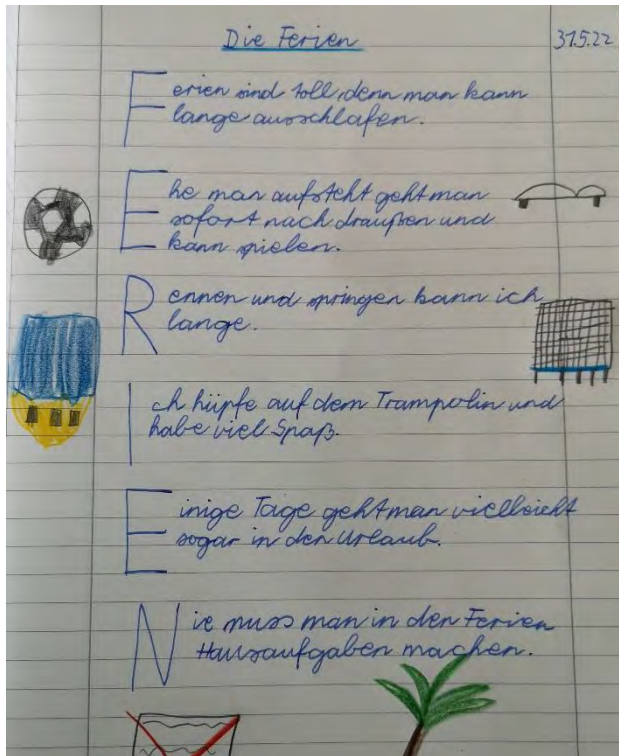 Die Ferien 31.5.22
Ferien sind toll, denn man kann
lange ausschlafen.
Ehe man aufsteht geht man
sofort nach draußen und
kann spielen.
Rennen und springen kann ich
lange.
Ich hüpfe auf dem Trampolin und
habe viel Spaß.
Einige Tage geht man vielleicht
sogar in den Urlaub.
Nie muss man in den Ferien
Hausaufgaben machen.